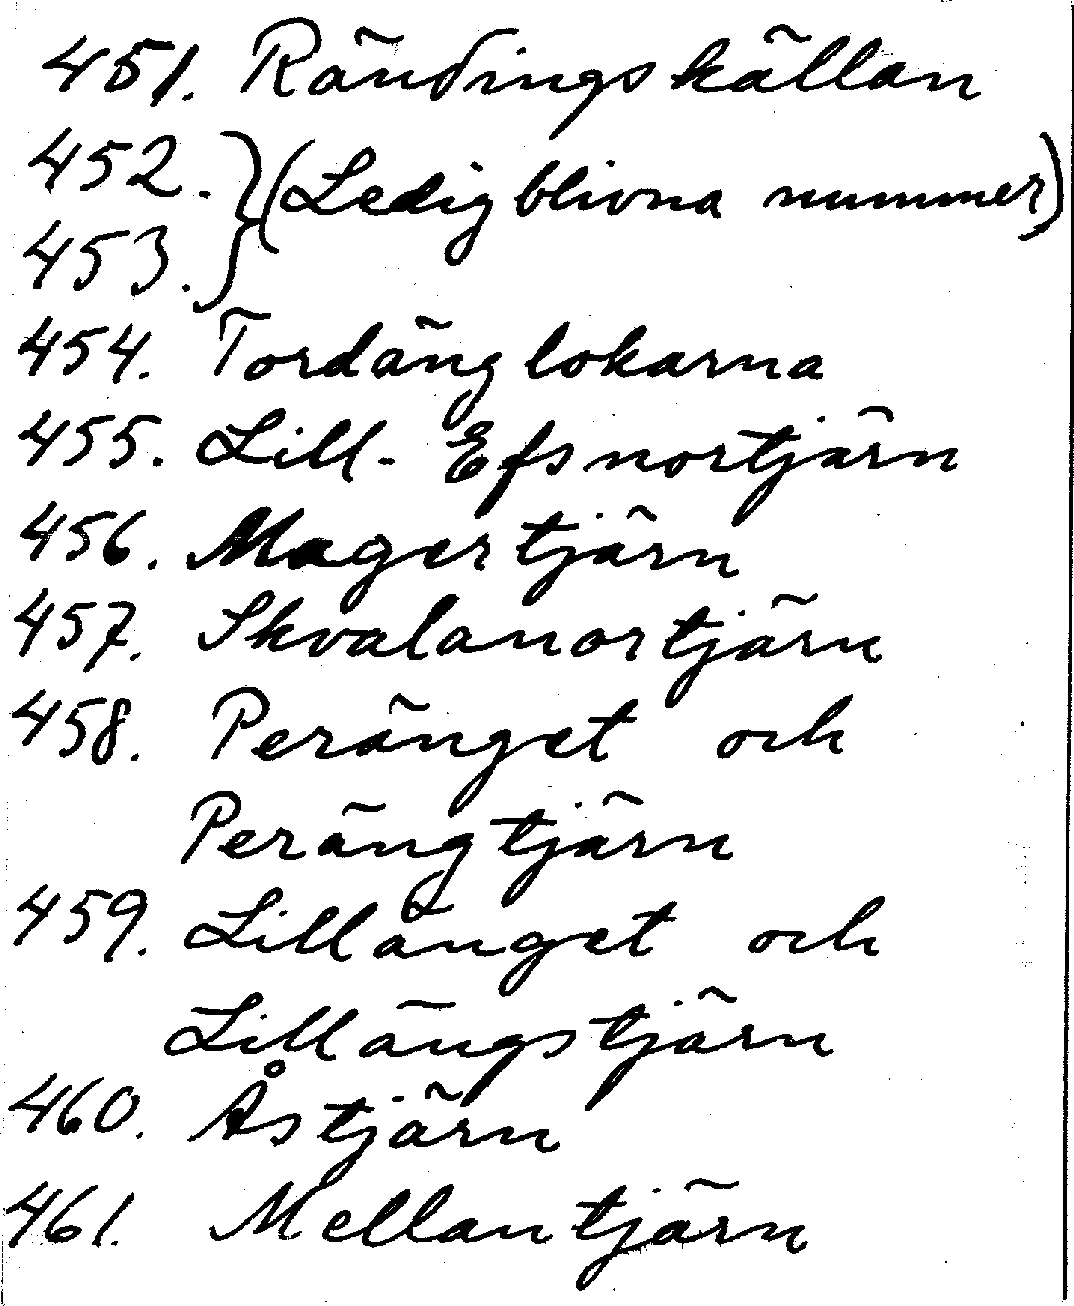 451. Rändingskällan
452. } (Ledigblivna nummer)
453. }
454. Tordänglokarna
455. Lill-Efsnortjärn
456. Magertjärn
457. Skvalanortjärn
458. Peränget och
Perängtjärn
459. Lillänget och
Lillängstjärn
460. Åstjärn
461. Mellantjärn